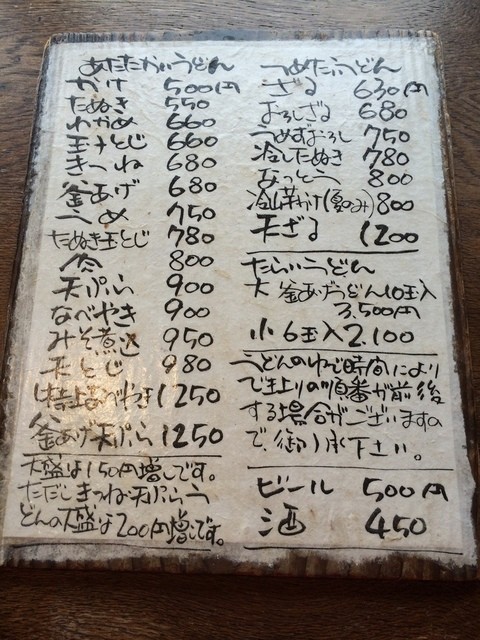 あたたかいうどん
かけ 500円
たぬき 550
わかめ 660
玉子とじ 660
きつね 680
釜あげ 680
うめ 750
たぬき玉とじ 780
肉 800
天ぷら 900
なべやき 900
みそ煮込 950
天とじ 980
特上なべやき 1250
釜あげ天ぷら 1250
大盛は150円増しです。
ただしきつね・天ぷらう
どんの大盛は200円増しです。
つめたいうどん
ざる 630円
おろしざる 680
うめずおろし 750
冷したぬき 780
なっとう 800
冷山芋かけ(夏のみ) 800
天ざる 1200
たらいうどん
大 釜あげうどん10玉入
3,500円
小 6玉入 2.100
うどんのゆで時間により
でき上りの順番が前後
する場合がございますの
で、御了承下さい。
ビール 500円
酒 450